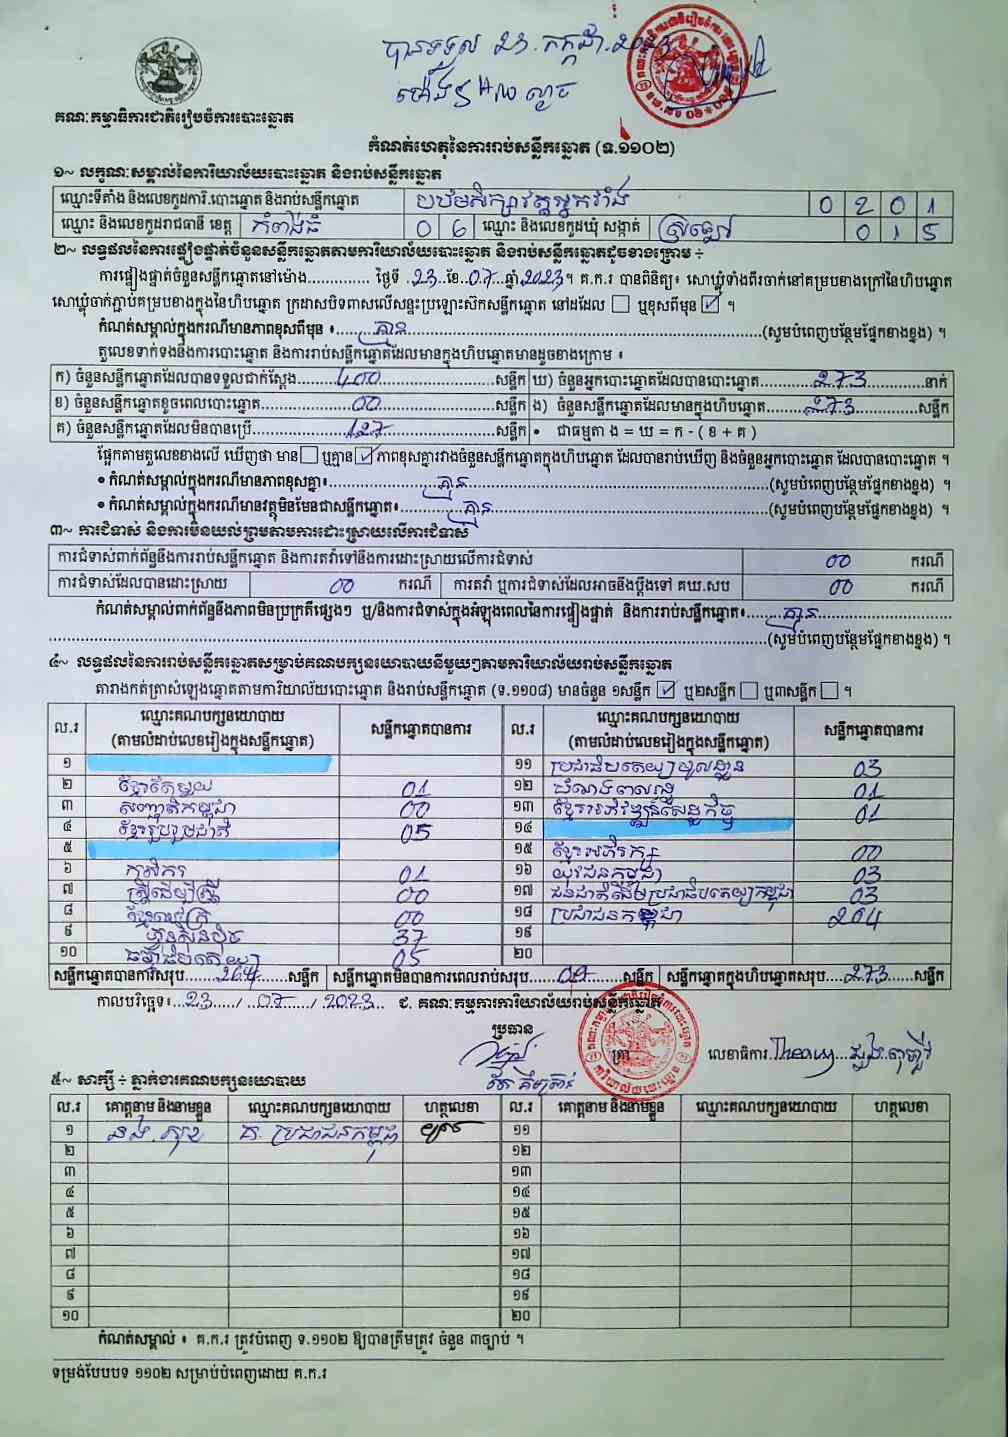 បានទទួល ២៣.កក្កដា.២០២៣
ម៉ោង
គណៈកម្មាធិការជាតិរៀបចំការបោះឆ្នោត
កំណត់ហេតុនៃការរាប់សន្លឹកឆ្នោត (ទ.១១០២)
១~ លក្ខណៈសម្គាល់នៃការិយាល័យបោះឆ្នោត និងរាប់សន្លឹកឆ្នោត
ឈ្មោះទីតាំង និងលេខកូដការិ.បោះឆ្នោត និងរាប់សន្លឹកឆ្នោត បឋមសិក្សាវត្ត 0 2 0 1
ឈ្មោះ និងលេខកូដរាជធានី ខេត្ត កំពង់ធំ 0 6 ឈ្មោះ និងលេខកូដឃុំ សង្កាត់ 0 1 5
២~ លទ្ធផលនៃការផ្ទៀងផ្ទាត់ចំនួនសន្លឹកឆ្នោតតាមការិយាល័យបោះឆ្នោត និងរាប់សន្លឹកឆ្នោតដូចខាងក្រោម ÷
ការផ្ទៀងផ្ទាត់ចំនួនសន្លឹកឆ្នោតនៅម៉ោង.............. ថ្ងៃទី 23 ខែ 07 ឆ្នាំ 2023។ គ.ក.រ បានពិនិត្យ៖ សោឃ្លុំទាំងពីរចាក់នៅគម្របខាងក្រៅនៃហិបឆ្នោត
សោឃ្លុំចាក់ភ្ជាប់គម្របខាងក្នុងនៃហិបឆ្នោត ក្រដាសបិទពាសលើសន្ទះប្រឡោះស៊កសន្លឹកឆ្នោត នៅដដែល ☐ ឬខុសពីមុន ☑ ។
កំណត់សម្គាល់ក្នុងករណីមានភាពខុសពីមុន ៖ គ្មាន (សូមបំពេញបន្ថែមផ្នែកខាងខ្នង) ។
តួលេខទាក់ទងនឹងការបោះឆ្នោត និងការរាប់សន្លឹកឆ្នោតដែលមានក្នុងហិបឆ្នោតមានដូចខាងក្រោម ៖
ក) ចំនួនសន្លឹកឆ្នោតដែលបានទទួលជាក់ស្តែង 400 សន្លឹក ឃ) ចំនួនអ្នកបោះឆ្នោតដែលបានបោះឆ្នោត 273 នាក់
ខ) ចំនួនសន្លឹកឆ្នោតខូចពេលបោះឆ្នោត 00 សន្លឹក ង) ចំនួនសន្លឹកឆ្នោតដែលមានក្នុងហិបឆ្នោត 273 សន្លឹក
គ) ចំនួនសន្លឹកឆ្នោតដែលមិនបានប្រើ 127 សន្លឹក • ជាធម្មតា ង = ឃ = ក - ( ខ + គ )
ផ្អែកតាមតួលេខខាងលើ ឃើញថា មាន ☐ ឬគ្មាន ☑ ភាពខុសគ្នារវាងចំនួនសន្លឹកឆ្នោតក្នុងហិបឆ្នោត ដែលបានរាប់ឃើញ និងចំនួនអ្នកបោះឆ្នោត ដែលបានបោះឆ្នោត ។
• កំណត់សម្គាល់ក្នុងករណីមានភាពខុសគ្នា៖ គ្មាន (សូមបំពេញបន្ថែមផ្នែកខាងខ្នង) ។
• កំណត់សម្គាល់ក្នុងករណីមានវត្ថុមិនមែនជាសន្លឹកឆ្នោត៖ គ្មាន (សូមបំពេញបន្ថែមផ្នែកខាងខ្នង) ។
៣~ ការជំទាស់ និងការមិនយល់ព្រមតាមការដោះស្រាយលើការជំទាស់
ការជំទាស់ពាក់ព័ន្ធនឹងការរាប់សន្លឹកឆ្នោត និងការតវ៉ាទៅនឹងការដោះស្រាយលើការជំទាស់ 00 ករណី
ការជំទាស់ដែលបានដោះស្រាយ 00 ករណី ការតវ៉ា ឬការជំទាស់ដែលអាចនឹងប្តឹងទៅ គឃ.សប 00 ករណី
កំណត់សម្គាល់ពាក់ព័ន្ធនឹងភាពមិនប្រក្រតីផ្សេងៗ ឬ/និងការជំទាស់ក្នុងអំឡុងពេលនៃការផ្ទៀងផ្ទាត់ និងការរាប់សន្លឹកឆ្នោត៖ គ្មាន
(សូមបំពេញបន្ថែមផ្នែកខាងខ្នង) ។
៤~ លទ្ធផលនៃការរាប់សន្លឹកឆ្នោតសម្រាប់គណបក្សនយោបាយនីមួយៗតាមការិយាល័យរាប់សន្លឹកឆ្នោត
តារាងកត់ត្រាសំឡេងឆ្នោតតាមការិយាល័យបោះឆ្នោត និងរាប់សន្លឹកឆ្នោត (ទ.១១០៨) មានចំនួន ១សន្លឹក ☑ ឬ២សន្លឹក ☐ ឬ៣សន្លឹក ☐ ។
ល.រ ឈ្មោះគណបក្សនយោបាយ (តាមលំដាប់លេខរៀងក្នុងសន្លឹកឆ្នោត) សន្លឹកឆ្នោតបានការ ល.រ ឈ្មោះគណបក្សនយោបាយ (តាមលំដាប់លេខរៀងក្នុងសន្លឹកឆ្នោត) សន្លឹកឆ្នោតបានការ
១ ១១ ប្រជាធិបតេយ្យមូលដ្ឋាន 03
២ ខ្មែរតែមួយ 01 ១២ សំបុកឃ្មុំ 01
៣ សញ្ជាតិកម្ពុជា 00 ១៣ ខ្មែរអភិវឌ្ឍន៍សេដ្ឋកិច្ច 01
៤ ខ្មែររួបរួមជាតិ 05 ១៤
៥ ១៥ ខ្មែរអភិរក្ស 00
៦ កសិករ 01 ១៦ យុវជនកម្ពុជា 03
៧ ស្ត្រីដើម្បីស្ត្រី 00 ១៧ ជនជាតិដើមប្រជាធិបតេយ្យកម្ពុជា 03
៨ 00 ១៨ ប្រជាជនកម្ពុជា 204
៩ ហ៊្វុនស៊ិនប៉ិច 37 ១៩
១០ ធម្មាធិបតេយ្យ 05 ២០
សន្លឹកឆ្នោតបានការសរុប 264 សន្លឹក សន្លឹកឆ្នោតមិនបានការពេលរាប់សរុប 09 សន្លឹក សន្លឹកឆ្នោតក្នុងហិបឆ្នោតសរុប 273 សន្លឹក
កាលបរិច្ឆេទ៖ 23 / 07 / 2023 ជ. គណៈកម្មការការិយាល័យរាប់សន្លឹកឆ្នោត
ប្រធាន
ត្រា
លេខាធិការ Theany
៥~ សាក្សី ÷ ភ្នាក់ងារគណបក្សនយោបាយ
ល.រ គោត្តនាម និងនាមខ្លួន ឈ្មោះគណបក្សនយោបាយ ហត្ថលេខា ល.រ គោត្តនាម និងនាមខ្លួន ឈ្មោះគណបក្សនយោបាយ ហត្ថលេខា
១ គ. ប្រជាជនកម្ពុជា ១១
២ ១២
៣ ១៣
៤ ១៤
៥ ១៥
៦ ១៦
៧ ១៧
៨ ១៨
៩ ១៩
១០ ២០
កំណត់សម្គាល់ ៖ គ.ក.រ ត្រូវបំពេញ ទ.១១០២ ឱ្យបានត្រឹមត្រូវ ចំនួន ៣ច្បាប់ ។
ទម្រង់បែបបទ ១១០២ សម្រាប់បំពេញដោយ គ.ក.រ